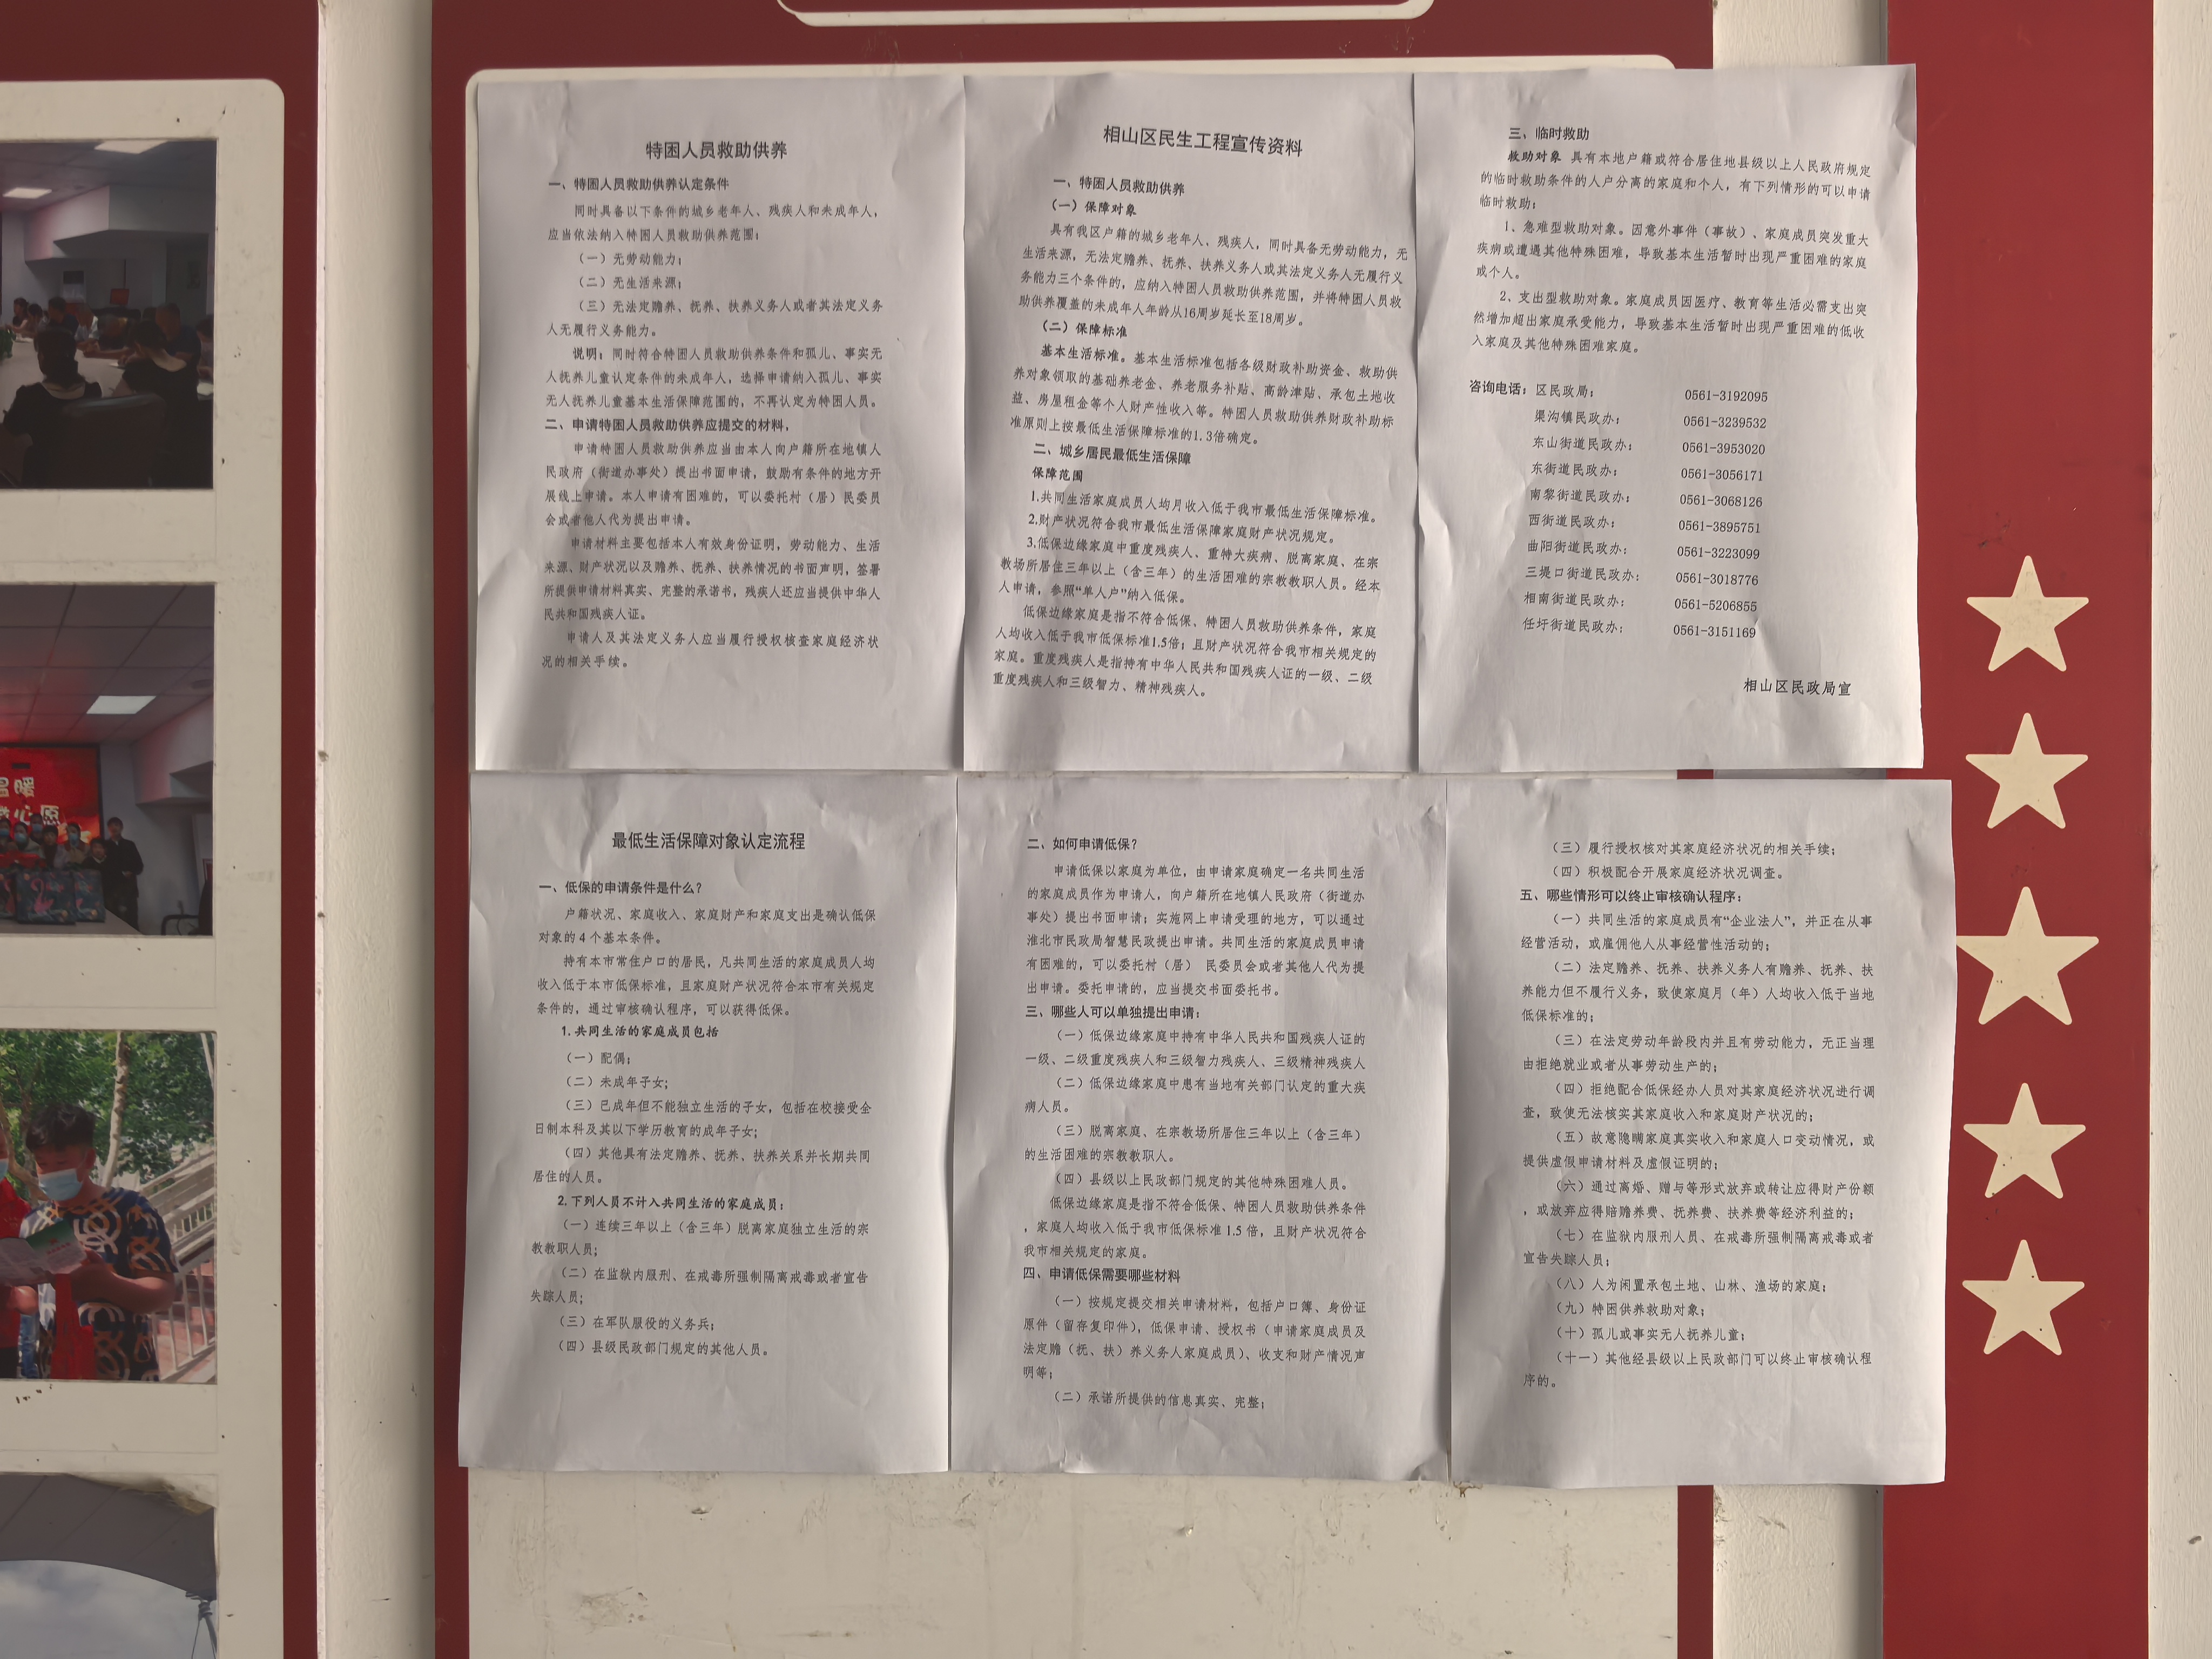 特困人员救助供养
一、特困人员救助供养认定条件
同时具备以下条件的城乡老年人、残疾人和未成年人，
应当依法纳入特困人员救助供养范围：
（一）无劳动能力；
（二）无生活来源；
（三）无法定赡养、抚养、扶养义务人或者其法定义务
人无履行义务能力。
说明：同时符合特困人员救助供养条件和孤儿、事实无
人抚养儿童认定条件的未成年人，选择申请纳入孤儿、事实
无人抚养儿童基本生活保障范围的，不再认定为特困人员。
二、申请特困人员救助供养应提交的材料，
申请特困人员救助供养应当由本人向户籍所在地镇人
民政府（街道办事处）提出书面申请，鼓励有条件的地方开
展线上申请。本人申请有困难的，可以委托村（居）民委员
会或者他人代为提出申请。
申请材料主要包括本人有效身份证明，劳动能力、生活
来源、财产状况以及赡养、抚养、扶养情况的书面声明，签署
所提供申请材料真实、完整的承诺书，残疾人还应当提供中华人
民共和国残疾人证。
申请人及其法定义务人应当履行授权核查家庭经济状
况的相关手续。
相山区民生工程宣传资料
一、特困人员救助供养
（一）保障对象
具有我区户籍的城乡老年人、残疾人，同时具备无劳动能力，无
生活来源，无法定赡养、抚养、扶养义务人或其法定义务人无履行义
务能力三个条件的，应纳入特困人员救助供养范围，并将特困人员救
助供养覆盖的未成年人年龄从16周岁延长至18周岁。
（二）保障标准
基本生活标准。基本生活标准包括各级财政补助资金、救助供
养对象领取的基础养老金、养老服务补贴、高龄津贴、承包土地收
益、房屋租金等个人财产性收入等。特困人员救助供养财政补助标
准原则上按最低生活保障标准的1.3倍确定。
二、城乡居民最低生活保障
保障范围
1.共同生活家庭成员人均月收入低于我市最低生活保障标准。
2.财产状况符合我市最低生活保障家庭财产状况规定。
3.低保边缘家庭中重度残疾人、重特大疾病、脱离家庭、在宗
教场所居住三年以上（含三年）的生活困难的宗教教职人员。经本
人申请，参照“单人户”纳入低保。
低保边缘家庭是指不符合低保、特困人员救助供养条件，家庭
人均收入低于我市低保标准1.5倍；且财产状况符合我市相关规定的
家庭。重度残疾人是指持有中华人民共和国残疾人证的一级、二级
重度残疾人和三级智力、精神残疾人。
三、临时救助
救助对象 具有本地户籍或符合居住地县级以上人民政府规定
的临时救助条件的人户分离的家庭和个人，有下列情形的可以申请
临时救助：
1、急难型救助对象。因意外事件（事故）、家庭成员突发重大
疾病或遭遇其他特殊困难，导致基本生活暂时出现严重困难的家庭
或个人。
2、支出型救助对象。家庭成员因医疗、教育等生活必需支出突
然增加超出家庭承受能力，导致基本生活暂时出现严重困难的低收
入家庭及其他特殊困难家庭。
咨询电话：区民政局： 0561-3192095
渠沟镇民政办： 0561-3239532
东山街道民政办： 0561-3953020
东街道民政办： 0561-3056171
南黎街道民政办： 0561-3068126
西街道民政办： 0561-3895751
曲阳街道民政办： 0561-3223099
三堤口街道民政办： 0561-3018776
相南街道民政办： 0561-5206855
任圩街道民政办： 0561-3151169
相山区民政局宣
最低生活保障对象认定流程
一、低保的申请条件是什么？
户籍状况、家庭收入、家庭财产和家庭支出是确认低保
对象的4个基本条件。
持有本市常住户口的居民，凡共同生活的家庭成员人均
收入低于本市低保标准，且家庭财产状况符合本市有关规定
条件的，通过审核确认程序，可以获得低保。
1.共同生活的家庭成员包括
（一）配偶；
（二）未成年子女；
（三）已成年但不能独立生活的子女，包括在校接受全
日制本科及其以下学历教育的成年子女；
（四）其他具有法定赡养、抚养、扶养关系并长期共同
居住的人员。
2.下列人员不计入共同生活的家庭成员：
（一）连续三年以上（含三年）脱离家庭独立生活的宗
教教职人员；
（二）在监狱内服刑、在戒毒所强制隔离戒毒或者宣告
失踪人员；
（三）在军队服役的义务兵；
（四）县级民政部门规定的其他人员。
二、如何申请低保？
申请低保以家庭为单位，由申请家庭确定一名共同生活
的家庭成员作为申请人，向户籍所在地镇人民政府（街道办
事处）提出书面申请；实施网上申请受理的地方，可以通过
淮北市民政局智慧民政提出申请。共同生活的家庭成员申请
有困难的，可以委托村（居） 民委员会或者其他人代为提
出申请。委托申请的，应当提交书面委托书。
三、哪些人可以单独提出申请：
（一）低保边缘家庭中持有中华人民共和国残疾人证的
一级、二级重度残疾人和三级智力残疾人、三级精神残疾人
（二）低保边缘家庭中患有当地有关部门认定的重大疾
病人员。
（三）脱离家庭、在宗教场所居住三年以上（含三年）
的生活困难的宗教教职人。
（四）县级以上民政部门规定的其他特殊困难人员。
低保边缘家庭是指不符合低保、特困人员救助供养条件
，家庭人均收入低于我市低保标准1.5倍，且财产状况符合
我市相关规定的家庭。
四、申请低保需要哪些材料
（一）按规定提交相关申请材料，包括户口簿、身份证
原件（留存复印件），低保申请、授权书（申请家庭成员及
法定赡（抚、扶）养义务人家庭成员）、收支和财产情况声
明等；
（二）承诺所提供的信息真实、完整；
（三）履行授权核对其家庭经济状况的相关手续；
（四）积极配合开展家庭经济状况调查。
五、哪些情形可以终止审核确认程序：
（一）共同生活的家庭成员有“企业法人”，并正在从事
经营活动，或雇佣他人从事经营性活动的；
（二）法定赡养、抚养、扶养义务人有赡养、抚养、扶
养能力但不履行义务，致使家庭月（年）人均收入低于当地
低保标准的；
（三）在法定劳动年龄段内并且有劳动能力，无正当理
由拒绝就业或者从事劳动生产的；
（四）拒绝配合低保经办人员对其家庭经济状况进行调
查，致使无法核实其家庭收入和家庭财产状况的；
（五）故意隐瞒家庭真实收入和家庭人口变动情况，或
提供虚假申请材料及虚假证明的；
（六）通过离婚、赠与等形式放弃或转让应得财产份额
，或放弃应得赔赡养费、抚养费、扶养费等经济利益的；
（七）在监狱内服刑人员、在戒毒所强制隔离戒毒或者
宣告失踪人员；
（八）人为闲置承包土地、山林、渔场的家庭；
（九）特困供养救助对象；
（十）孤儿或事实无人抚养儿童；
（十一）其他经县级以上民政部门可以终止审核确认程
序的。